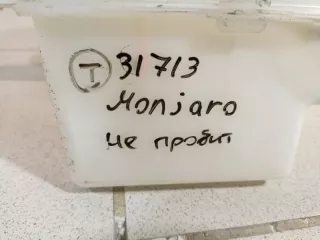 Т 31713
Monjaro
не пробит